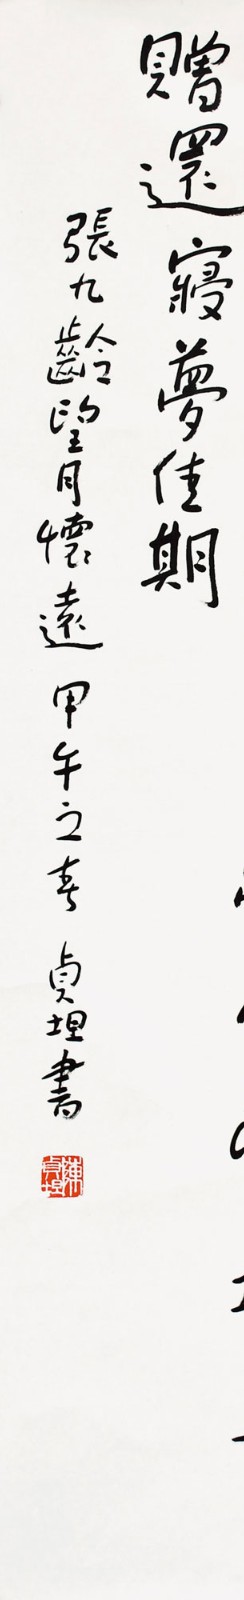 贈還寢夢佳期
張九齡望月懷遠 甲午之春 貞坦書
陳貞坦